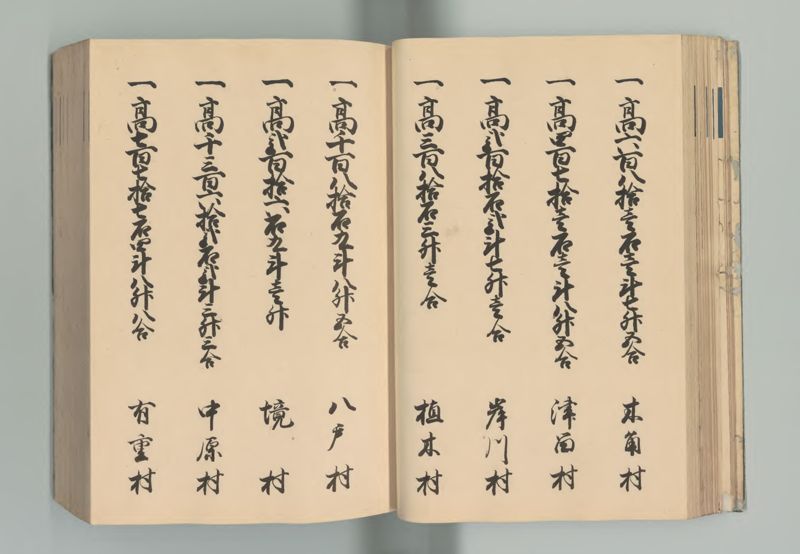 一高六百八拾壱石壱斗七升五合 木角村
一高四百七拾壱石壱斗八升五合 津留村
一高弐百拾石弐斗七升壱合 岸川村
一高三百八拾石三升壱合 植木村
一高千百八拾石九斗八升五合 八戸村
一高弐百拾六石九斗壱升 境村
一高千三百六拾弐石弐斗三升三合 中原村
一高七百七拾七石四斗八升八合 有重村